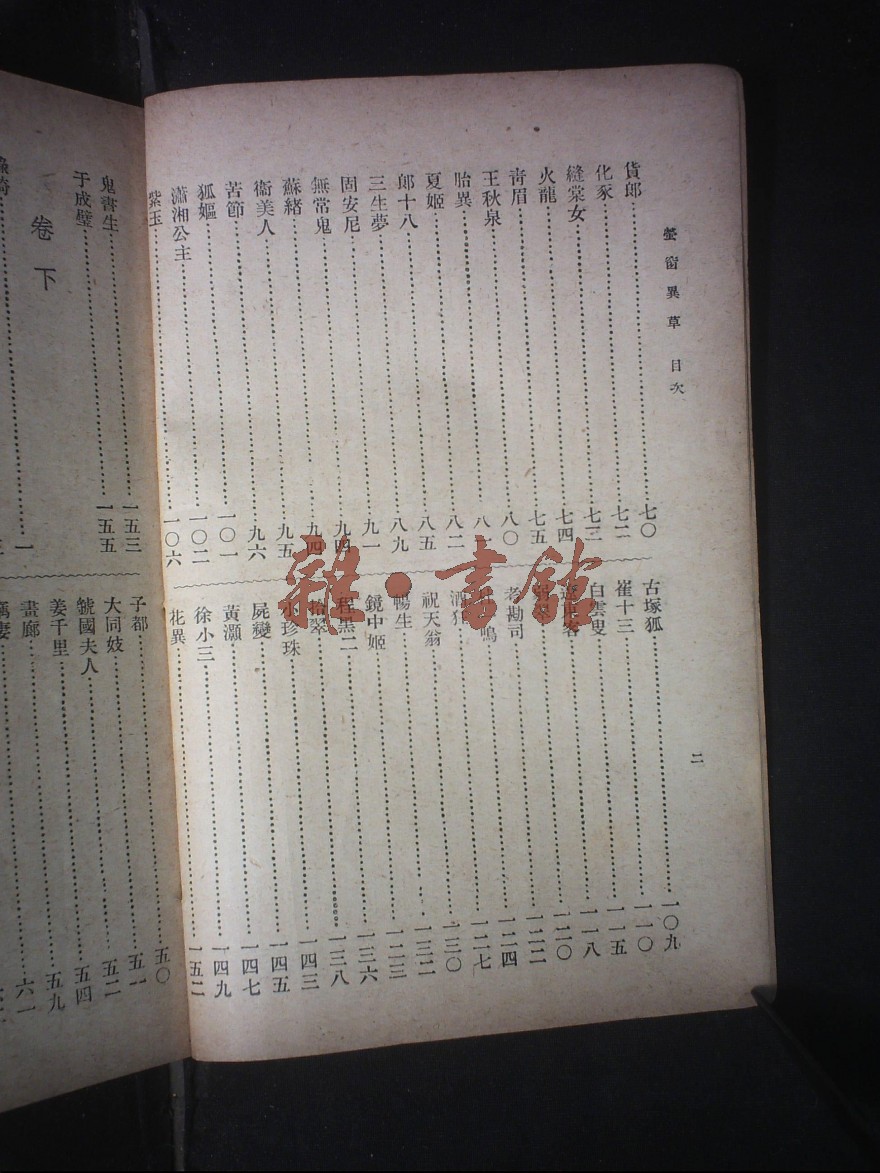 螢窗異草 目次
貨郎 七〇
化豕 七二
縫裳女 七三
火龍 七四
青眉 七五
王秋泉 八〇
胎異
夏姬 八二
郎十八 八五
三生夢 八九
固安尼 九一
無常鬼 九四
蘇緒 九四
衞美人 九五
苦節 九六
狐嫗 一〇一
瀟湘公主 一〇二
紫玉 一〇六
古塚狐 一〇九
崔十三 一一〇
白雲叟 一一五
一一八
一二〇
考勘司 一二二
鳴 一二四
酒狂 一二七
祝天翁 一三〇
暢生 一三二
鏡中姬
程黑二 一三六
拾翠 一三八
小珍珠 一四三
屍變 一四五
黃灝 一四七
徐小三 一四九
花異 一五二
二
鬼書生 一五三
于成璧 一五五
卷下
一
子都 五〇
大同妓 五一
虢國夫人 五二
姜千里 五四
畫廊 五九
六一
雜·書館